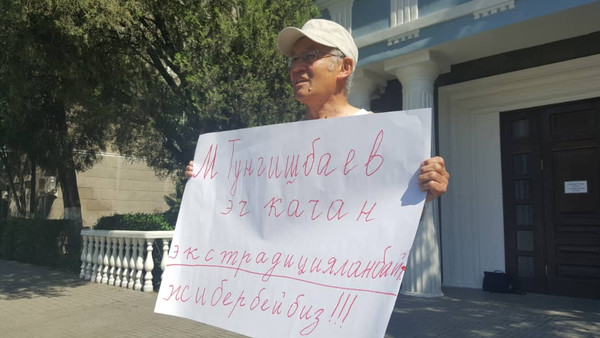 М Тунгишбаев
эч качан
экстрадицияланбайт
жибербейбиз!!!